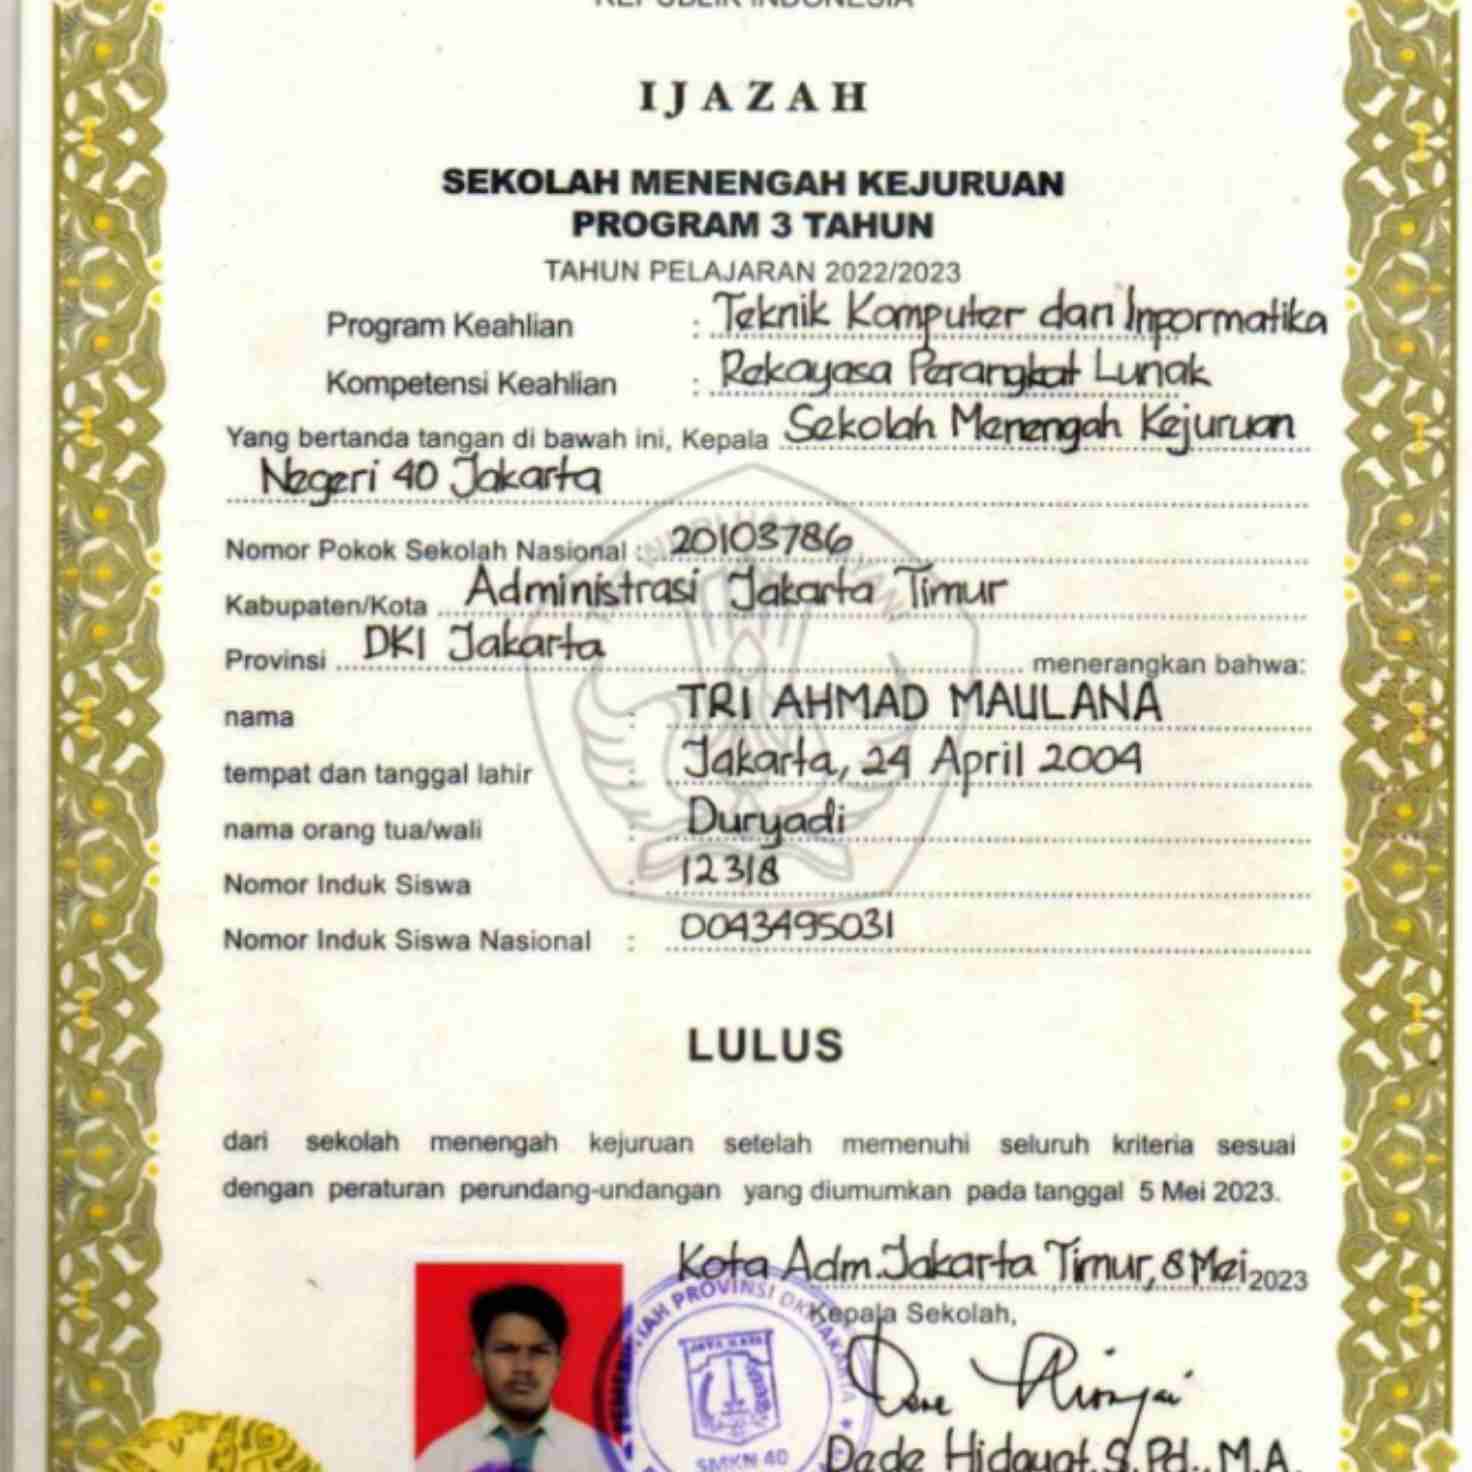 REPUBLIK INDONESIA
IJAZAH
SEKOLAH MENENGAH KEJURUAN
PROGRAM 3 TAHUN
TAHUN PELAJARAN 2022/2023
Program Keahlian : Teknik Komputer dan Inpormatika
Kompetensi Keahlian : Rekayasa Perangkat Lunak
Yang bertanda tangan di bawah ini, Kepala Sekolah Menengah Kejuruan
Negeri 40 Jakarta
Nomor Pokok Sekolah Nasional : 20103786
Kabupaten/Kota Administrasi Jakarta Timur
Provinsi DKI Jakarta menerangkan bahwa:
nama : TRI AHMAD MAULANA
tempat dan tanggal lahir : Jakarta, 24 April 2004
nama orang tua/wali : Duryadi
Nomor Induk Siswa : 12318
Nomor Induk Siswa Nasional : 0043495031
LULUS
dari sekolah menengah kejuruan setelah memenuhi seluruh kriteria sesuai
dengan peraturan perundang-undangan yang diumumkan pada tanggal 5 Mei 2023.
Kota Adm. Jakarta Timur, 8 Mei 2023
Kepala Sekolah,
PROVINSI DKI JAKARTA
JAYA RAYA
SMKN 40
Dede Hidayat, S.Pd., M.A.